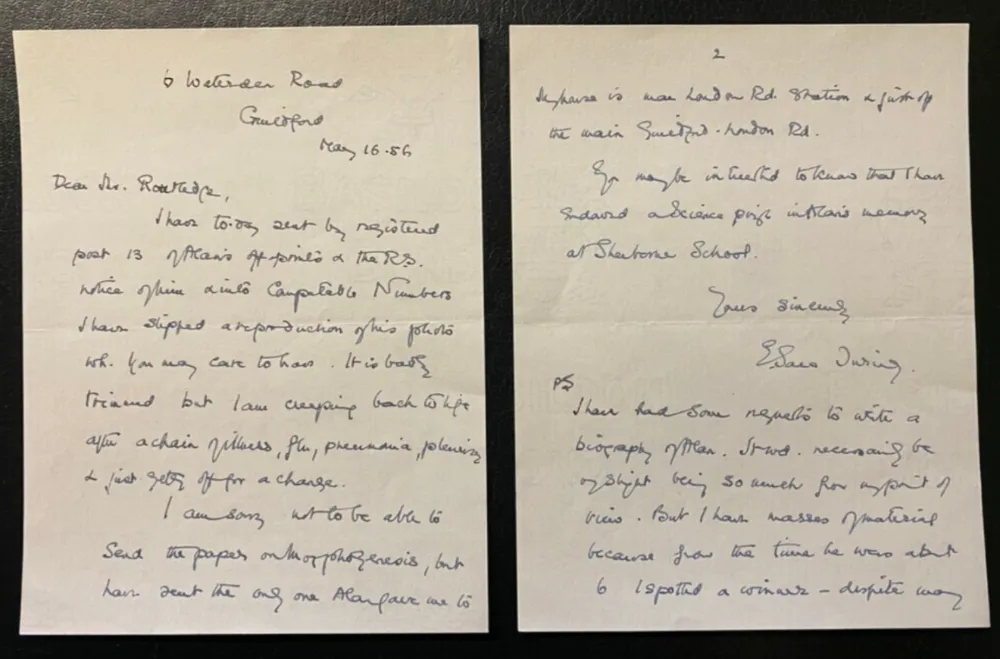 6 Waterden Road
Guildford
May 16.56
Dear Mr. Routledge,
I have to-day sent by registered
post 13 of Alan's offprints & the R.S.
notice of him & into Computable Numbers
I have slipped a reproduction of his photo
wh. you may care to have. It is badly
trimmed but I am creeping back to life
after a chain of illness, flu, pneumonia, pleurisy
& just getting off for a change.
I am sorry not to be able to
send the paper on Morphogenesis, but
have sent the only one Alan gave me to
2
My house is near London Rd. Station & just off
the main Guildford-London Rd.
You may be interested to know that I have
endowed a Science prize in Alan's memory
at Sherborne School.
Yours sincerely
E. Sara Turing.
PS
I have had some requests to write a
biography of Alan. It wd. necessarily be
slight being so much from my point of
view. But I have masses of material
because from the time he was about
6 I spotted a winner – despite many